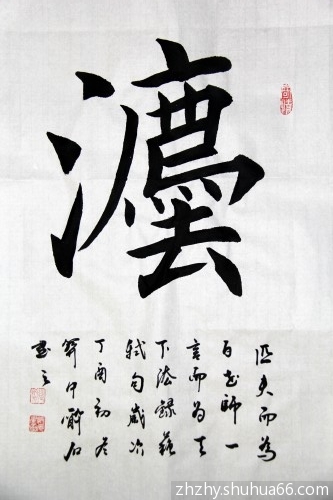 灋
匹夫而為
百世師一
言而為天
下法錄蘇
軾句歲次
丁酉初冬
書之
zhzhy.shuhua66.com